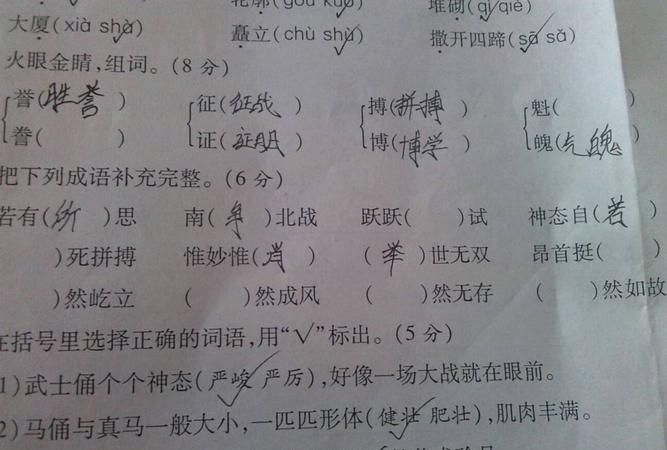 轮廓(gōu kuò) 堆砌(qì qiè)
大厦(xià shà) 矗立(chù shù) 撒开四蹄(sā sǎ)
火眼金睛,组词。(8分)
誉(胜誉 ) 征(征战 ) 搏(拼搏 ) 魁( )
誊( ) 证(证明 ) 博(博学 ) 魄(气魄 )
把下列成语补充完整。(6分)
若有(所 )思 南(争 )北战 跃跃( )试 神态自(若 )
)死拼搏 惟妙惟(肖 ) (举 )世无双 昂首挺( )
)然屹立 ( )然成风 ( )然无存 ( )然如故
在括号里选择正确的词语,用“√”标出。(5分)
1)武士俑个个神态(严峻 严厉),好像一场大战就在眼前。
2)马俑与真马一般大小,一匹匹形体(健壮 肥壮),肌肉丰满。